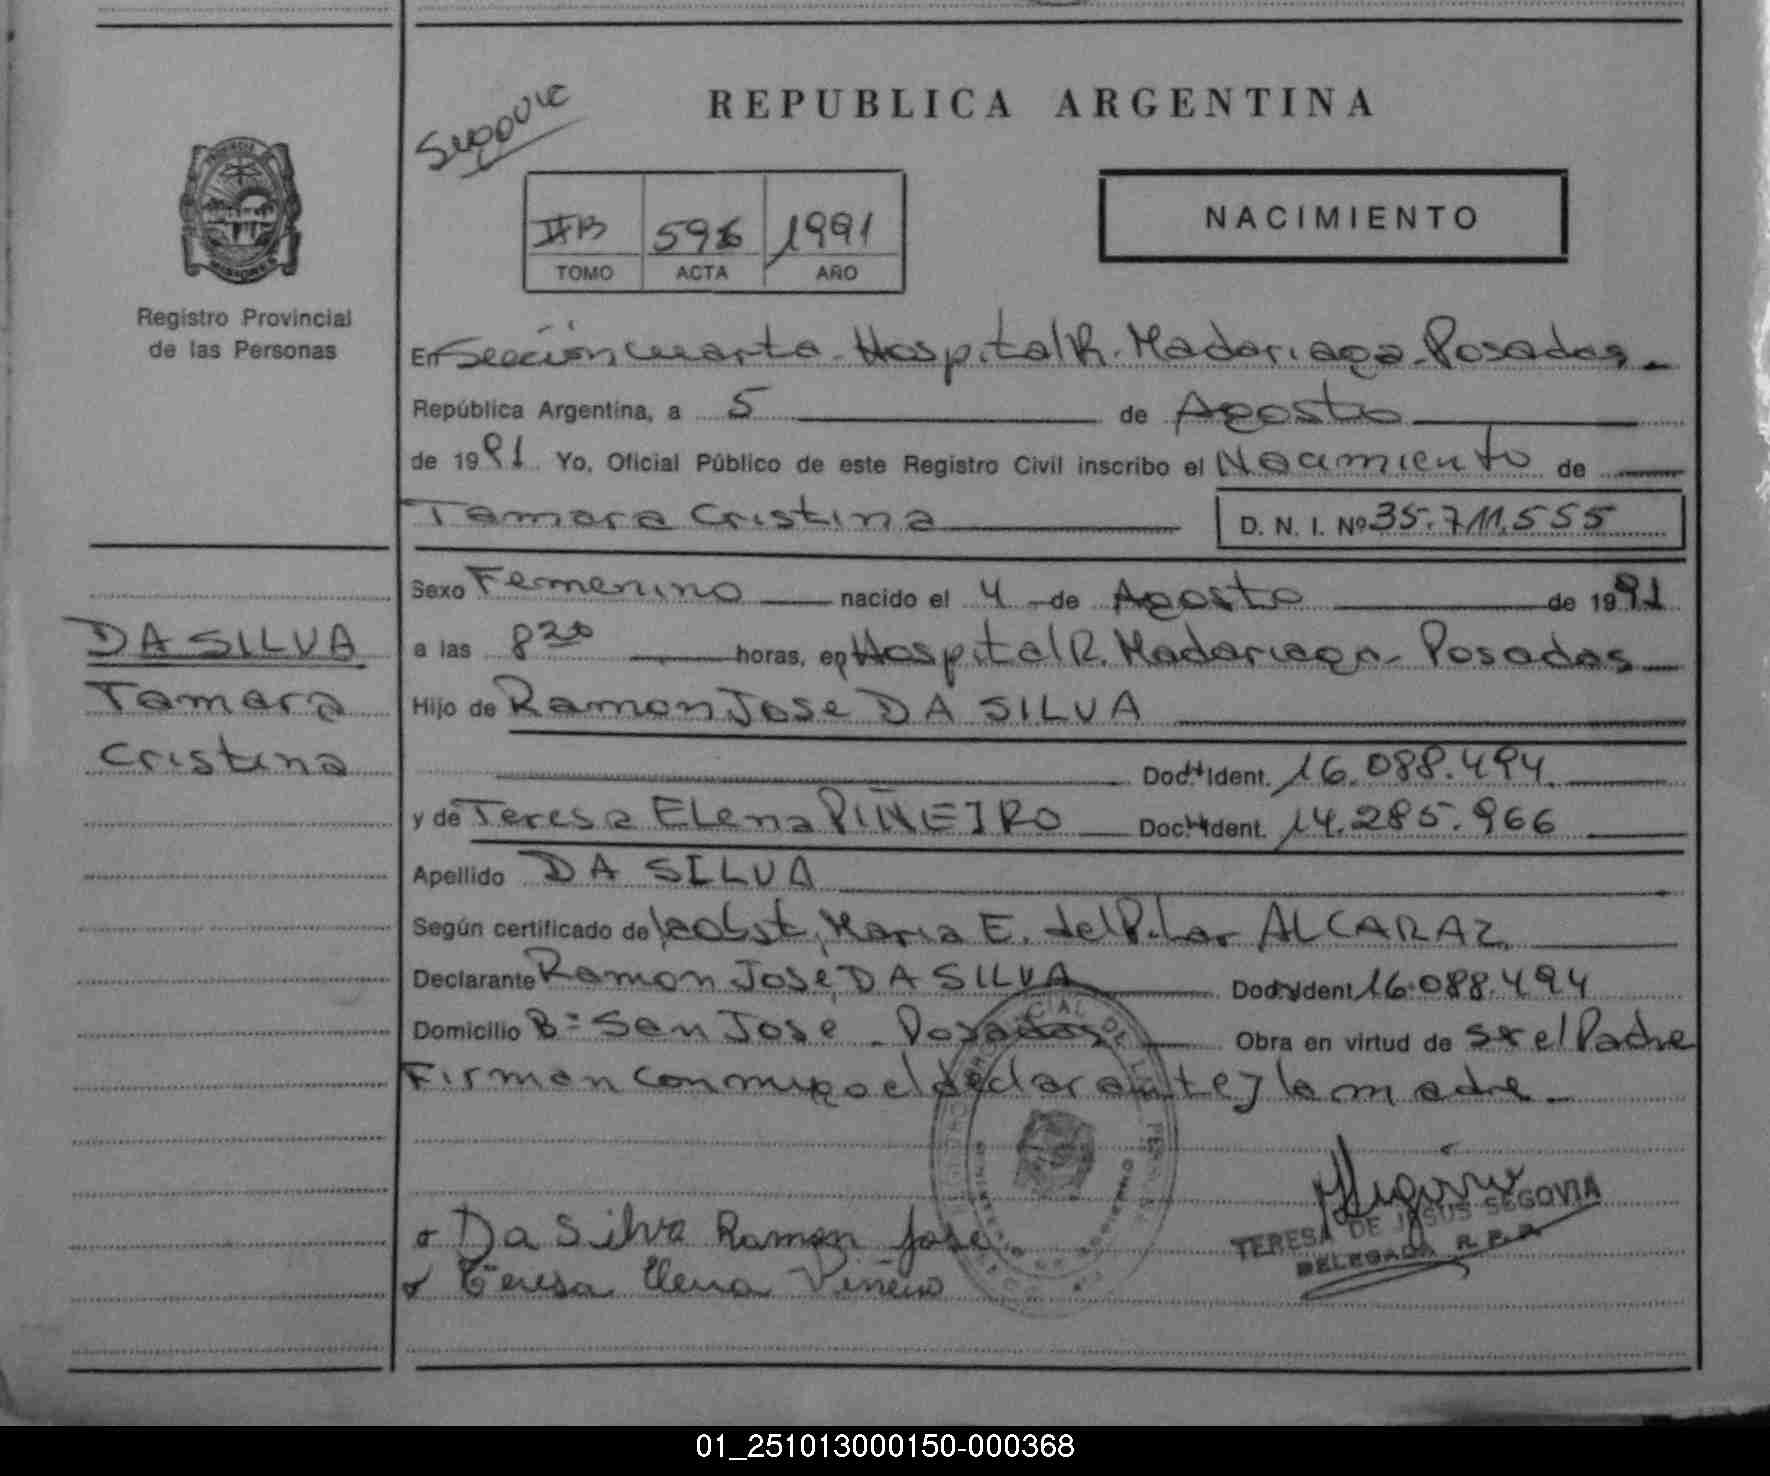 REPUBLICA ARGENTINA
NACIMIENTO
II B 596 1991
TOMO ACTA AÑO
PROVINCIA DE MISIONES
Registro Provincial
de las Personas
En Sección Cuarta - Hospital R. Madariaga - Posadas
República Argentina, a 5 de Agosto
de 1991 Yo, Oficial Público de este Registro Civil inscribo el Nacimiento de
Tamara Cristina
D. N. I. Nº 35.711.555
DA SILVA
Tamara
Cristina
Sexo Femenino nacido el 4 de Agosto de 1991
a las 8 20 horas, en Hospital R. Madariaga - Posadas
Hijo de Ramon Jose DA SILVA
Doc. Ident. 16.088.494
y de Teresa Elena PIÑEIRO Doc. Ident. 14.285.966
Apellido DA SILVA
Según certificado de la obst, Maria E. del Pilar ALCARAZ
Declarante Ramon Jose DA SILVA Doc. Ident 16.088.494
Domicilio Bº San Jose - Posadas Obra en virtud de ser el Padre
Firman conmigo el declarante y la madre -
Da Silva Ramon Jose
Teresa Elena Piñeiro
TERESA DE JESUS SEGOVIA
DELEGADA R. P. P.
01_251013000150-000368